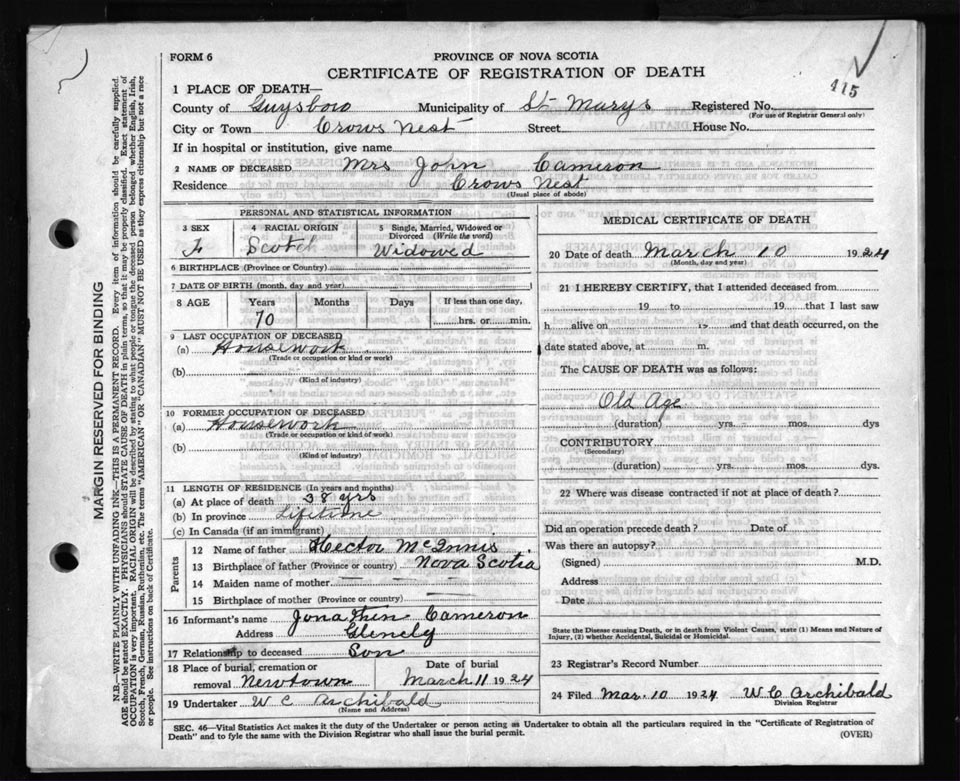 FORM 6
PROVINCE OF NOVA SCOTIA
CERTIFICATE OF REGISTRATION OF DEATH
415
1 PLACE OF DEATH—
County of Guysboro Municipality of St Marys Registered No.
(For use of Registrar General only)
City or Town Crows Nest Street House No.
If in hospital or institution, give name
2 NAME OF DECEASED Mrs John Cameron
Residence Crows Nest
(Usual place of abode)
PERSONAL AND STATISTICAL INFORMATION
3 SEX 4 RACIAL ORIGIN 5 Single, Married, Widowed or Divorced (Write the word)
F Scotch Widowed
6 BIRTHPLACE (Province or Country)
7 DATE OF BIRTH (month, day and year)
8 AGE Years Months Days If less than one day,
70 hrs. or min.
9 LAST OCCUPATION OF DECEASED
(a) Housework
(Trade or occupation or kind or work)
(b)
(Kind of industry)
10 FORMER OCCUPATION OF DECEASED
(a) Housework
(Trade or occupation or kind of work)
(b)
(Kind of industry)
11 LENGTH OF RESIDENCE (In years and months)
(a) At place of death 38 yrs
(b) In province Lifetime
(c) In Canada (if an immigrant)
Parents
12 Name of father Hector McInnis
13 Birthplace of father (Province or country) Nova Scotia
14 Maiden name of mother — —
15 Birthplace of mother (Province or country) —
16 Informant's name Jonathin Cameron
Address Glenelg
17 Relationship to deceased Son
18 Place of burial, cremation or removal Newtown
Date of burial March 11 1924
19 Undertaker W C Archibald
(Name and Address)
MEDICAL CERTIFICATE OF DEATH
20 Date of death March 10 1924
(Month, day and year)
21 I HEREBY CERTIFY, that I attended deceased from
19 to 19 that I last saw
h alive on 19 and that death occurred, on
date stated above, at m.
The CAUSE OF DEATH was as follows:
Old Age
(duration) yrs. mos. dys
CONTRIBUTORY
(Secondary)
(duration) yrs. mos. dys.
22 Where was disease contracted if not at place of death?
Did an operation precede death? Date of
Was there an autopsy?
(Signed) M.D.
Address
Date
State the Disease causing Death, or in death from Violent Causes, state (1) Means and Nature of
Injury, (2) whether Accidental, Suicidal or Homicidal.
23 Registrar's Record Number
24 Filed Mar. 10 1924 W C Archibald
Division Registrar
SEC. 46—Vital Statistics Act makes it the duty of the Undertaker or person acting as Undertaker to obtain all the particulars required in the "Certificate of Registration of
Death" and to fyle the same with the Division Registrar who shall issue the burial permit.
(OVER)
MARGIN RESERVED FOR BINDING
N.B.—WRITE PLAINLY WITH UNFADING INK—THIS IS A PERMANENT RECORD. Every item of information should be carefully supplied.
AGE should be stated EXACTLY. PHYSICIANS should STATE CAUSE OF DEATH in plain terms, so that it may be properly classified. Exact statement of
OCCUPATION is very important. RACIAL ORIGIN will be described by stating to what people or tongue the deceased person belonged whether English, Irish,
Scotch, French, German, Russian, Ruthenian, etc. The terms "AMERICAN" OR "CANADIAN" MUST NOT BE USED as they express citizenship but not a race
or people. See instructions on back of Certificate.